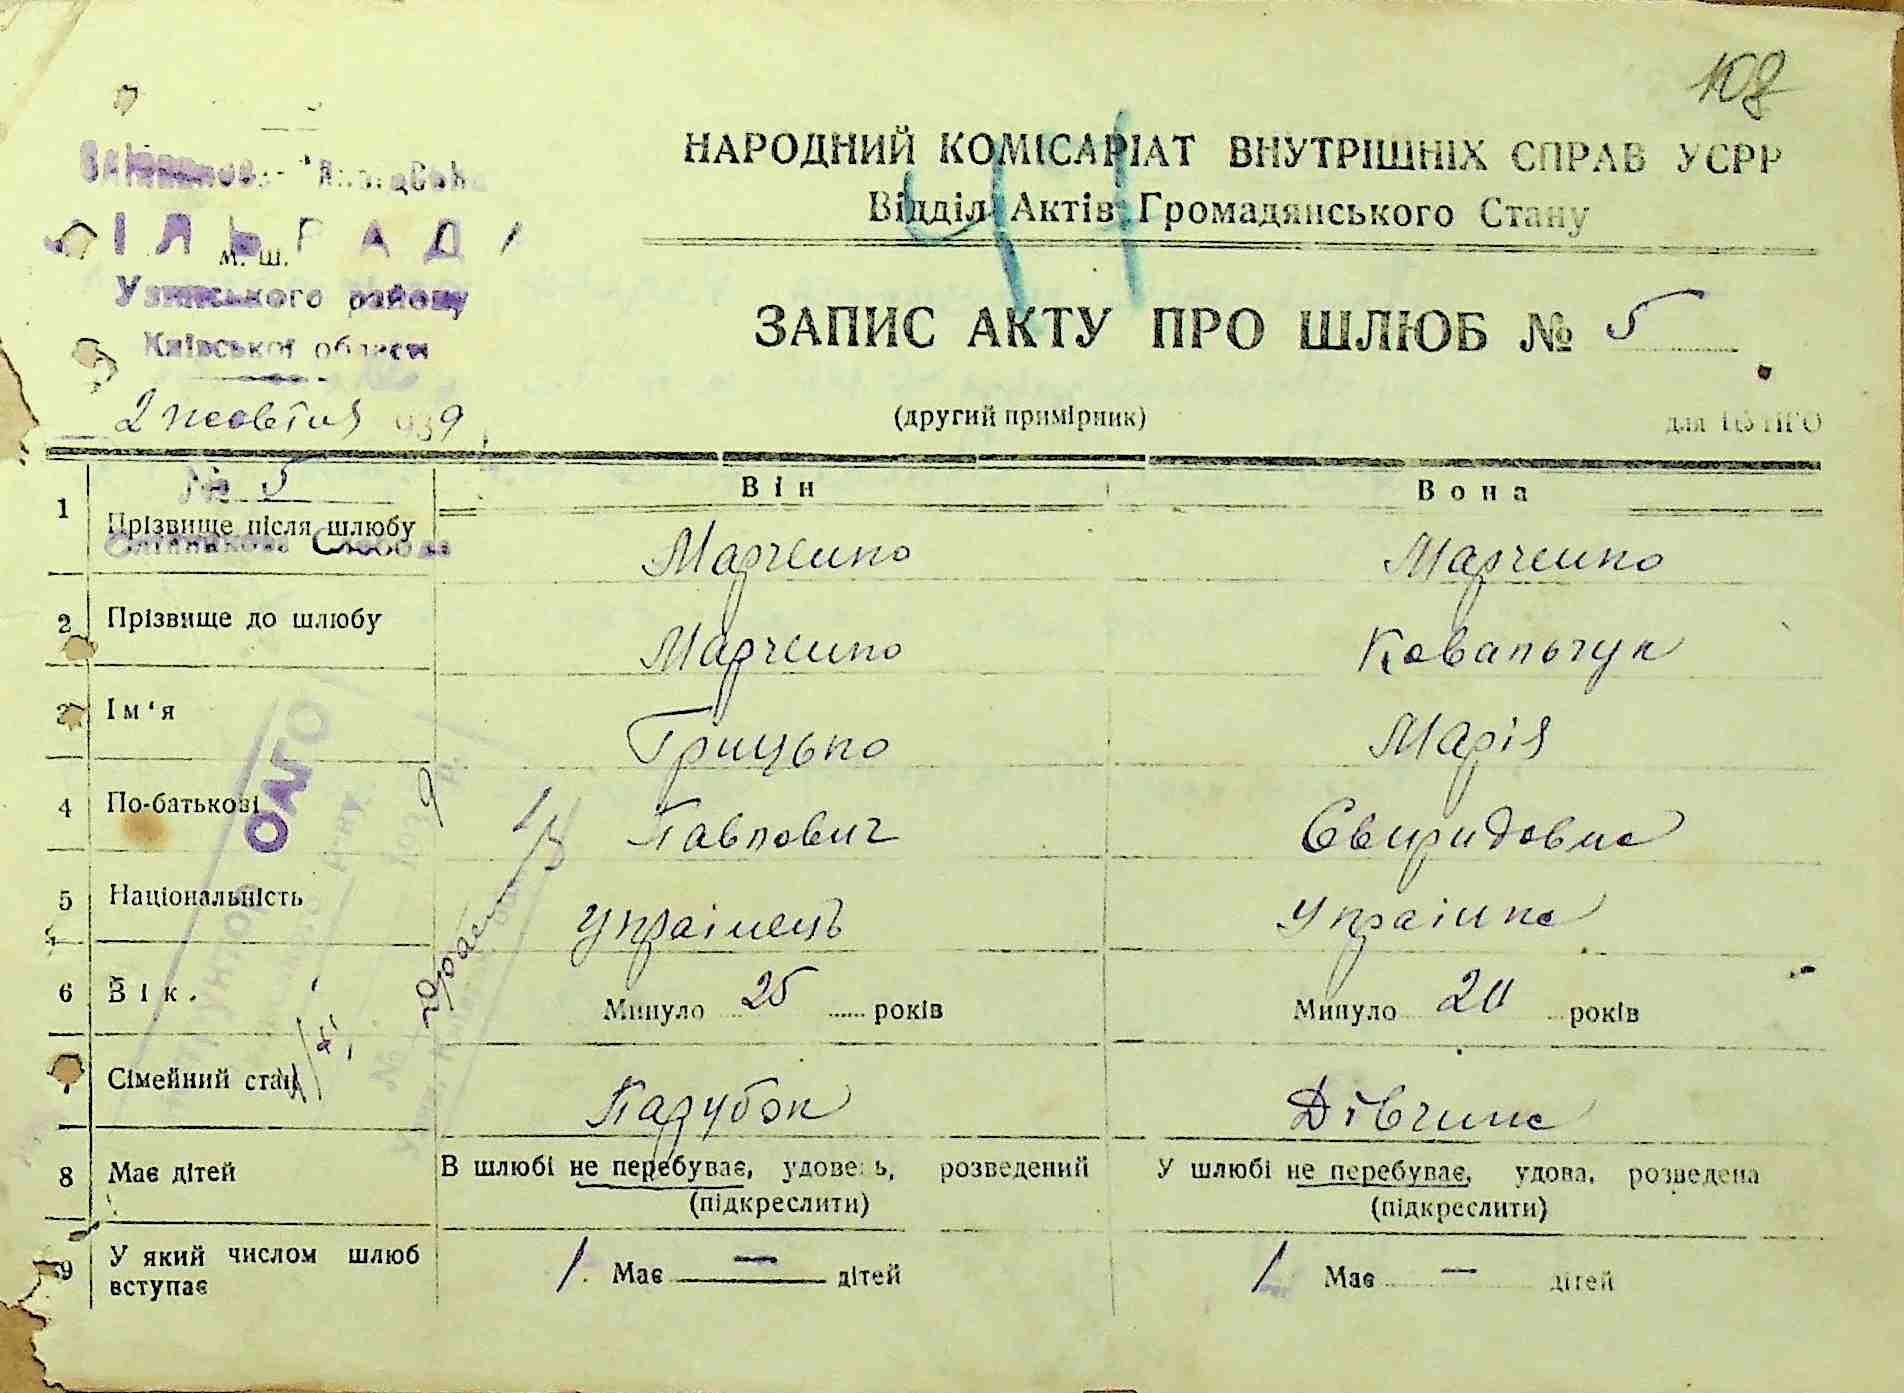 108
НАРОДНИЙ КОМІСАРІАТ ВНУТРІШНІХ СПРАВ УСРР
Відділ Актів Громадянського Стану
ІЛЬРАД
м. ш.
Узинського району
Київської области
ЗАПИС АКТУ ПРО ШЛЮБ № 5
2 жовтня 1939
(другий примірник)
для ЦВНГО
№ 5
Він Вона
1 Прізвище після шлюбу Марченко Марченко
Слобода
2 Прізвище до шлюбу Марченко Ковальчук
3 Ім'я Грицько Марія
4 По-батькові Павлович Свиридовна
5 Національність Українець Українка
6 Вік. Минуло 25 років Минуло 20 років
Сімейний стан Парубок Дівчина
8 Має дітей В шлюбі не перебуває, удовець, розведений У шлюбі не перебуває, удова, розведена
(підкреслити) (підкреслити)
9 У який числом шлюб вступає 1. Має — дітей 1 Має — дітей